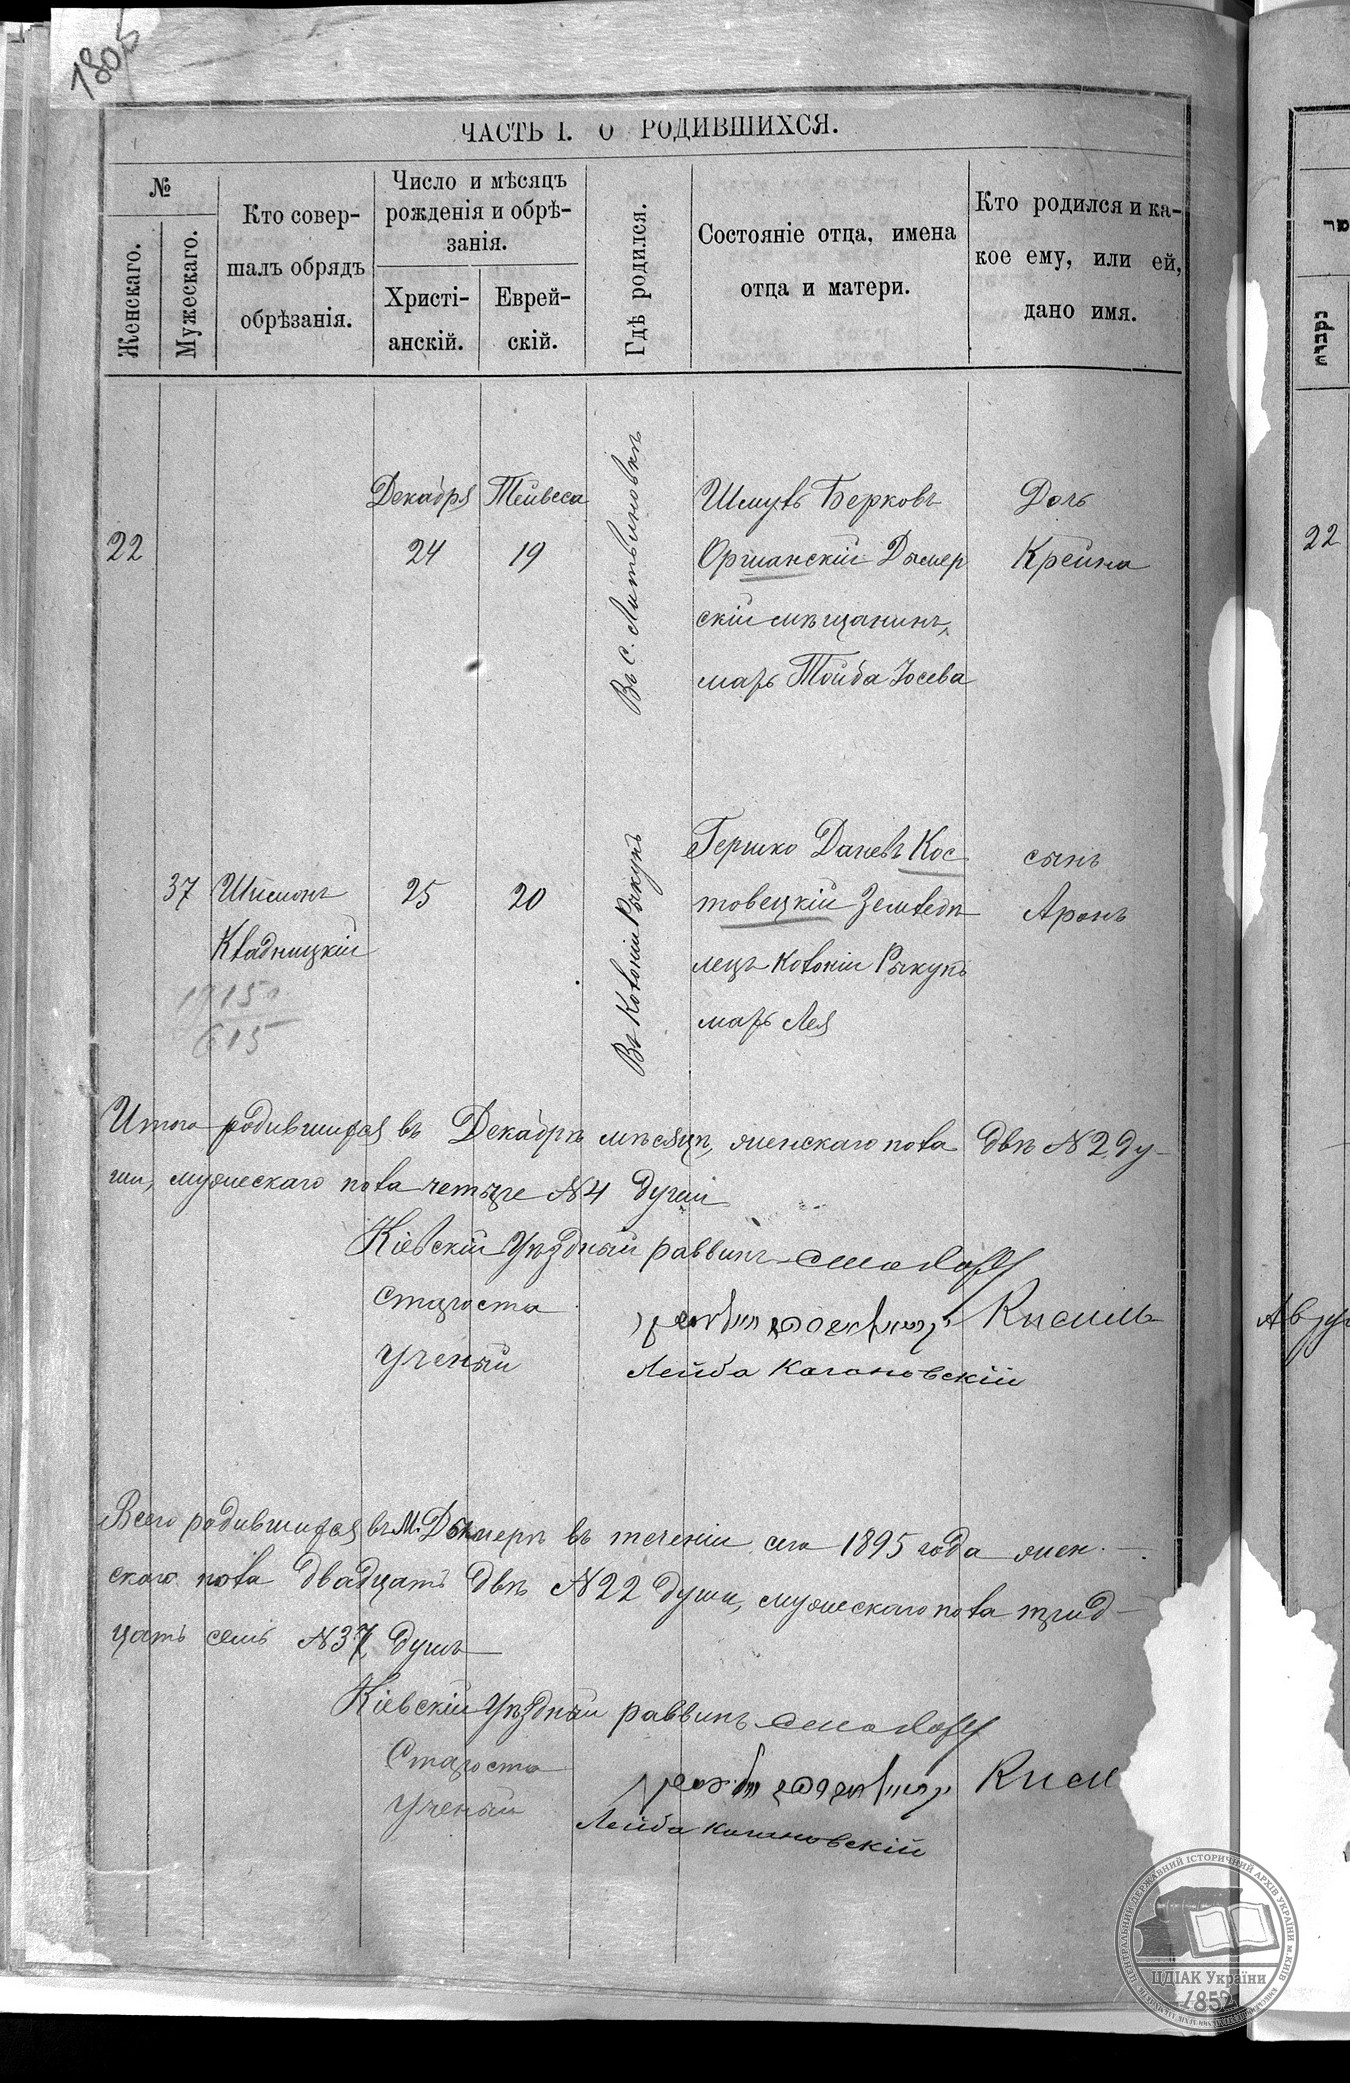 1805
ЧАСТЬ I. О РОДИВШИХСЯ.
№
Женскаго.
Мужескаго.
Кто совер-
шалъ обрядъ
обрѣзанія.
Число и мѣсяцъ
рожденія и обрѣ-
занія.
Христі-
анскій.
Еврей-
скій.
Гдѣ родился.
Состояніе отца, имена
отца и матери.
Кто родился и ка-
кое ему, или ей,
дано имя.
Декабря Тейвеса
22 24 19
Въ с. Литвиновкѣ
Шмуль Берковъ
Оршанскій Дымер
скій мѣщанинъ,
мать Тойба Іосева
Дочь
Крейна
37 Шимонъ
Кладницкій
25 20
Въ Колоніи Рыкунъ
Гершко Даневъ Кос
товецкій Земледѣ
лецъ Колоніи Рыкунъ
мать Лея
сынъ
Аронъ
615
Итого родившихся въ Декабрѣ мѣсяцѣ, женскаго пола двѣ N2 ду-
ши, мужескаго пола четыре N4 души
Кіевскій Уѣздный раввинъ
Староста
Кисиль
Ученый
Лейба Кагановскій
Всего родившихся въ М. Дымерѣ въ теченіи сего 1895 года жен-
скаго пола двадцать двѣ N22 души, мужескаго пола трид-
цать семь N37 душъ
Кіевскій Уѣздный раввинъ
Староста
Ученый
Лейба Кагановскій
נקבה
22
Авгу
ЦЕНТРАЛЬНИЙ ДЕРЖАВНИЙ ІСТОРИЧНИЙ АРХІВ УКРАЇНИ М.КИЇВ
ЦДІАК України
1852